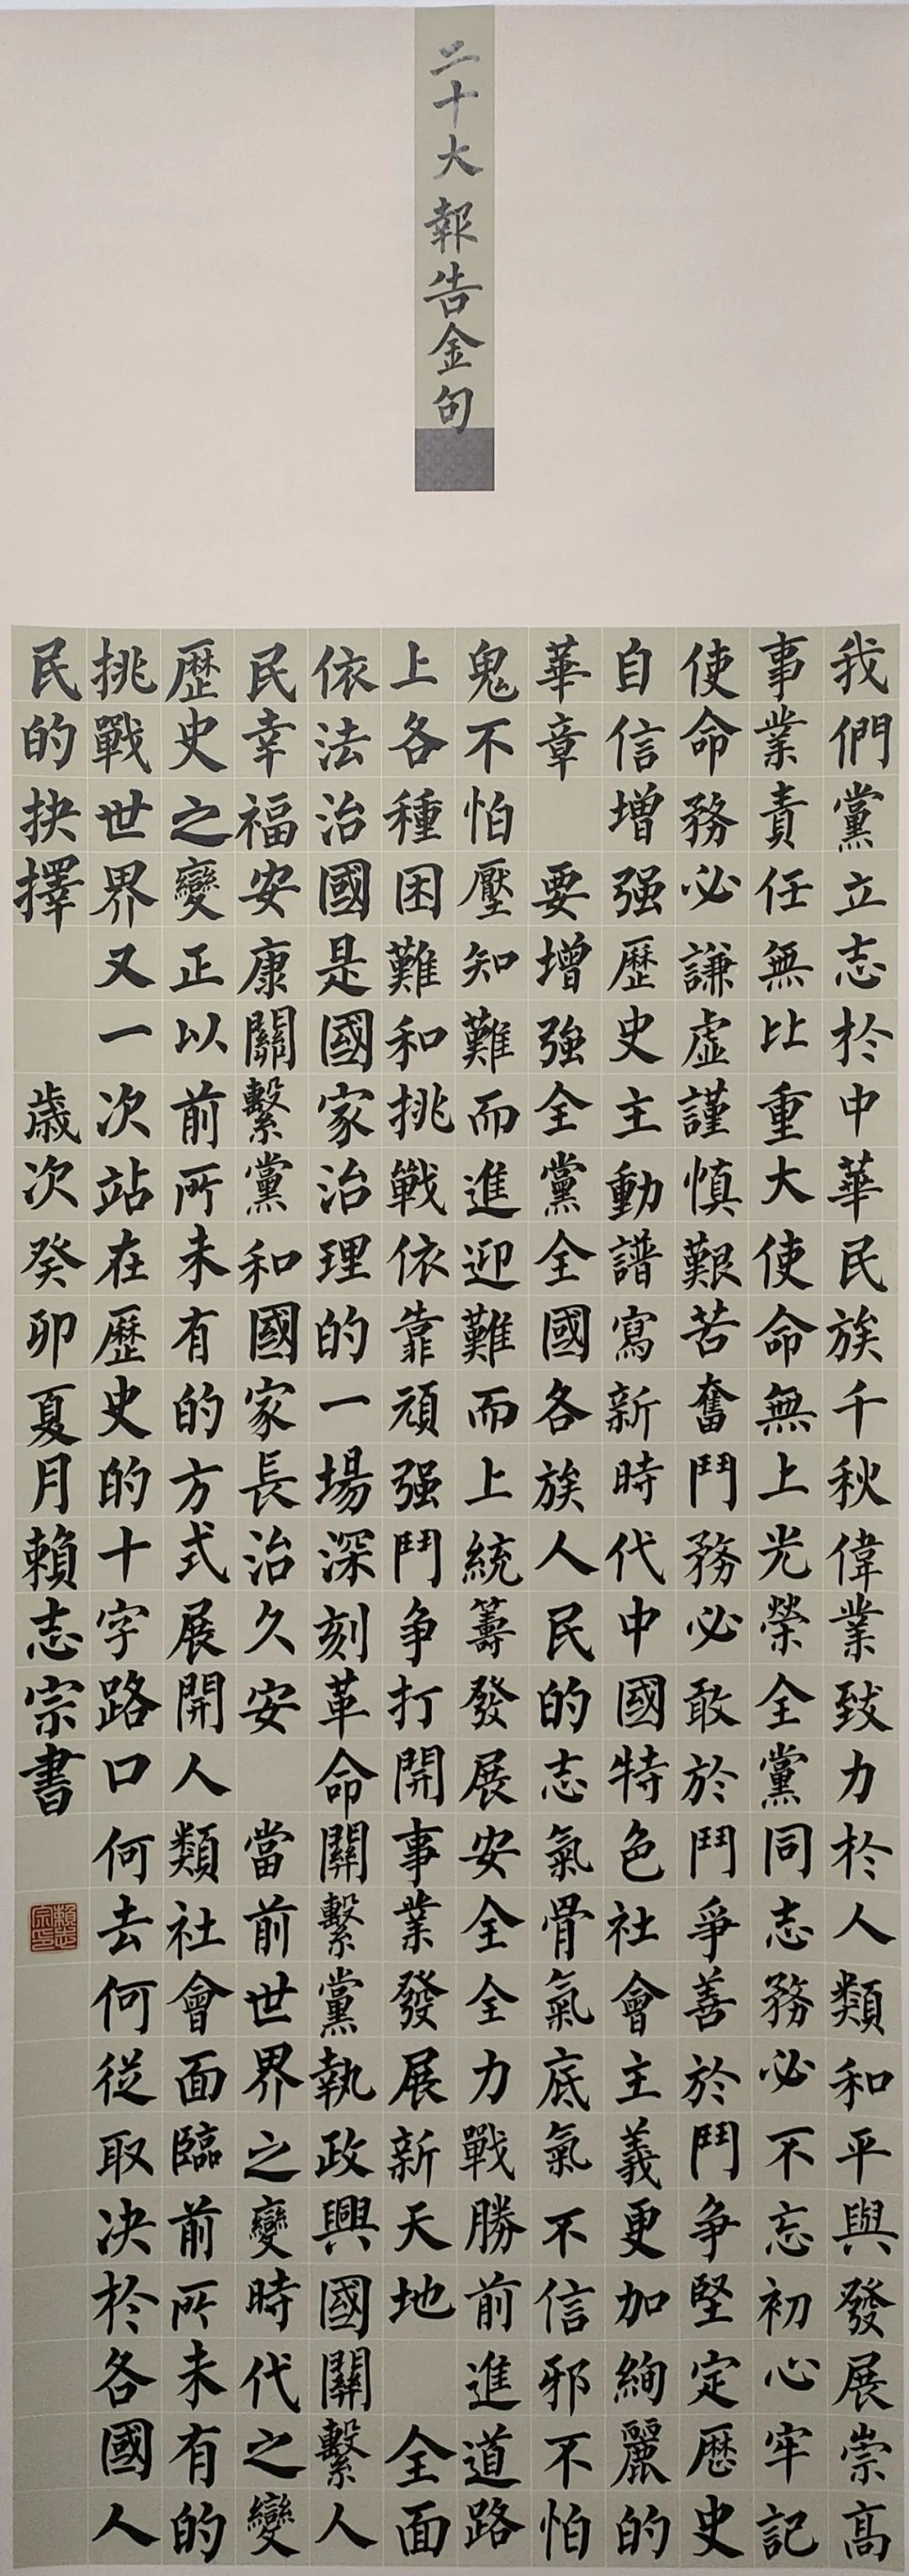 二十大報告金句
我們黨立志於中華民族千秋偉業致力於人類和平與發展崇高
事業責任無比重大使命無上光榮全黨同志務必不忘初心牢記
使命務必謙虛謹慎艱苦奮鬥務必敢於鬥爭善於鬥争堅定歷史
自信增强歷史主動譜寫新時代中國特色社會主義更加絢麗的
華章 要增強全黨全國各族人民的志氣骨氣底氣不信邪不怕
鬼不怕壓知難而進迎難而上統籌發展安全全力戰勝前進道路
上各種困難和挑戰依靠頑强鬥争打開事業發展新天地 全面
依法治國是國家治理的一場深刻革命關繫黨執政興國關繫人
民幸福安康關繫黨和國家長治久安 當前世界之變時代之變
歷史之變正以前所未有的方式展開人類社會面臨前所未有的
挑戰世界又一次站在歷史的十字路口何去何從取决於各國人
民的抉擇 歲次癸卯夏月賴志宗書
賴志宗印